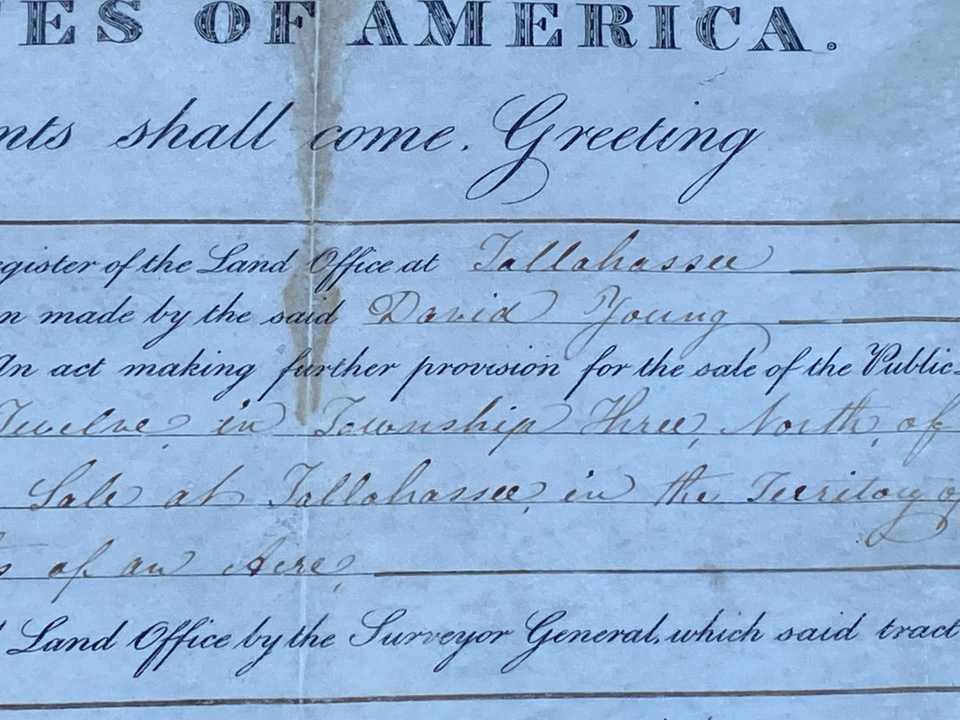 ES OF AMERICA.
nts shall come. Greeting
egister of the Land Office at Tallahassee
n made by the said David Young
An act making further provision for the sale of the Public
Twelve, in Township Three, North, of
Sale at Tallahassee, in the Territory of
s of an Acre,
Land Office by the Surveyor General, which said tract